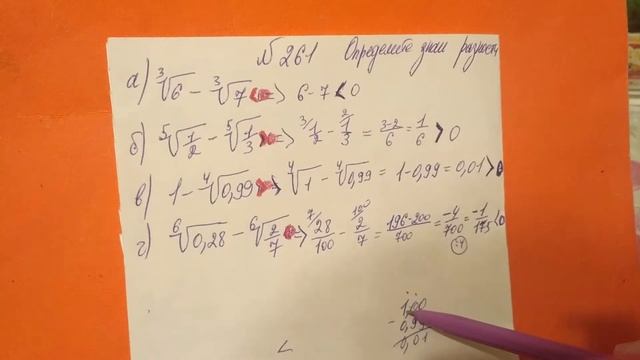 №261 Определите знак разности
а) ³√6 - ³√7 => 6-7<0
б) ⁵√1/2 - ⁵√1/3 => 1/2 - 1/3 = 3-2/6 = 1/6 > 0
в) 1 - ⁴√0,99 => ⁴√1 - ⁴√0,99 = 1-0,99 = 0,01 > 0
г) ⁶√0,28 - ⁶√2/7 => 28/100 - 2/7 = 196-200/700 = -4/700 = -1/175 < 0
:4
1,00
- 0,99
0,01